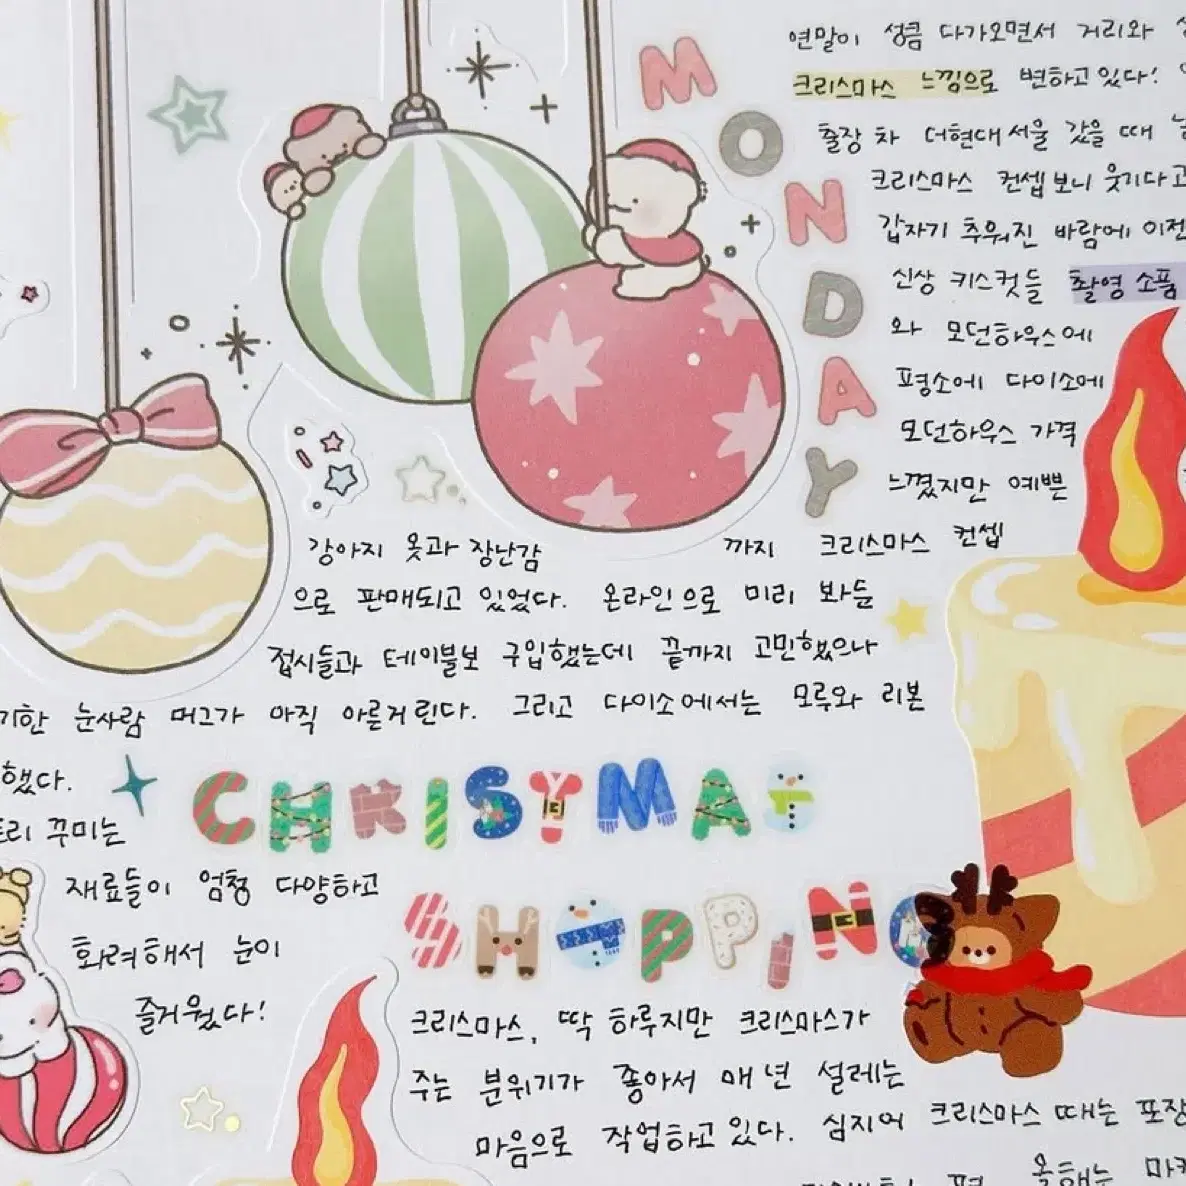 MONDAY
연말이 성큼 다가오면서 거리와
크리스마스 느낌으로 변하고 있다!
출장 차 더현대 서울 갔을 때
크리스마스 컨셉 보니 웃기다고
갑자기 추워진 바람에 이전
신상 키스컷들 촬영 소품
와 모던하우스에
평소에 다이소에
모던하우스 가격
느꼈지만 예쁜
강아지 옷과 장난감 까지 크리스마스 컨셉
으로 판매되고 있었다. 온라인으로 미리 봐둔
접시들과 테이블보 구입했는데 끝까지 고민했으나
기한 눈사람 머그가 아직 아른거린다. 그리고 다이소에서는 모루와 리본
했다.
트리 꾸미는
재료들이 엄청 다양하고
화려해서 눈이
즐거웠다!
CHRISTMAS
SHOPPING
크리스마스, 딱 하루지만 크리스마스가
주는 분위기가 좋아서 매년 설레는
마음으로 작업하고 있다. 심지어 크리스마스 때는 포장
올해는